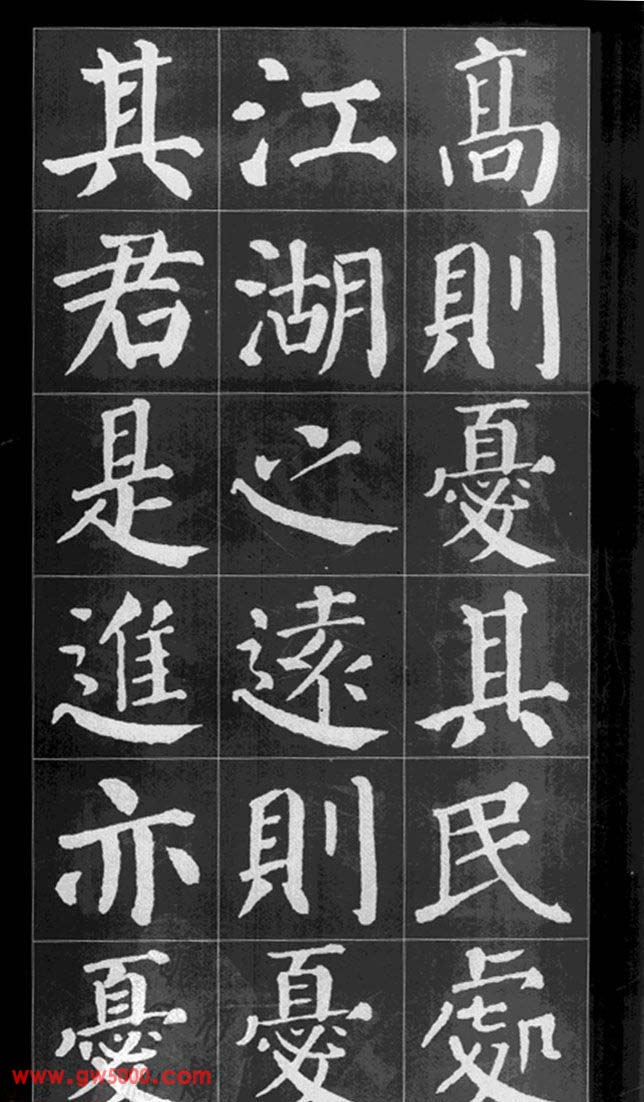 高則憂其民處
江湖之遠則憂
其君是進亦憂
www.gw5000.com